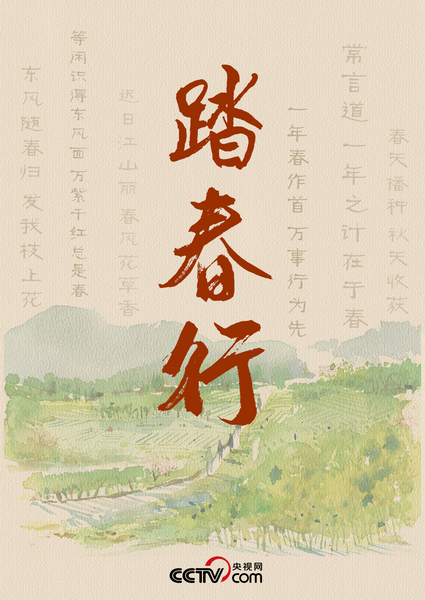 春天播种 秋天收获
常言道 一年之计在于春
一年春作首 万事行为先
踏春行
迟日江山丽 春风花草香
等闲识得东风面 万紫千红总是春
东风随春归 发我枝上花
CCTV.com 央视网